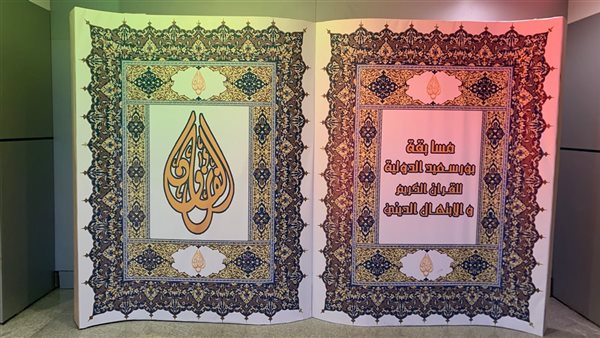 مسابقة
بورسعيد الدولية
للقران الكريم
و الابتهال الدينى